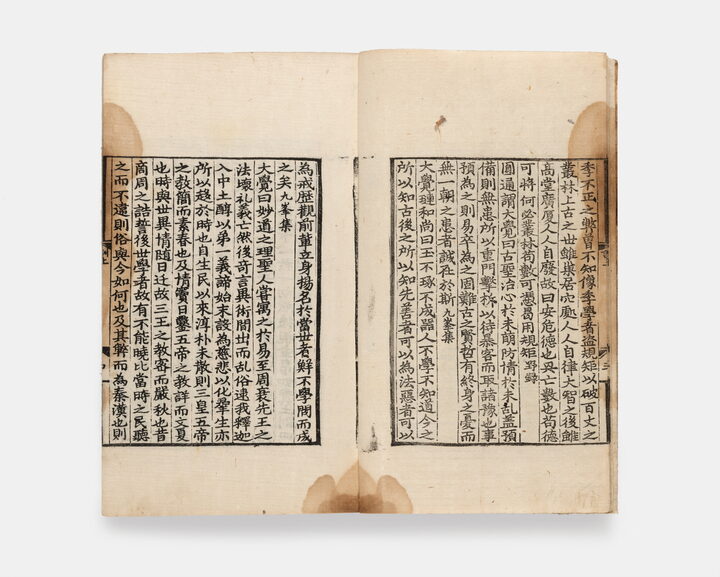 季不正之弊曾不知像季學者盜規矩以破百丈之
叢林上古之世雖巢居穴處人人自律大智之後雖
高堂廣厦人人自廢故曰安危德也興亡數也苟德
可將何必叢林苟數可憑曷用規矩野錄
圓通謂大覺曰古聖治心於未萌防情於未乱盖預
備則無患所以重門擊柝以待暴客而取諸豫也事
預為之則易卒為之固難古之賢哲有終身之憂而
無一朝之患者誠在於斯九峯集
大覺璉和尚曰玉不琢不成器人不學不知道今之
所以知古後之所以知先善者可以為法惡者可以
為戒歴觀前輩立身揚名於當世者鮮不學問而成
之矣九峯集
大覺曰妙道之理聖人嘗寓之於易至周衰先王之
法壞礼義亡然後奇言異術間出而乱俗逮我釋迦
入中土醇以弟一義諦始末設為慈悲以化羣生亦
所以趍於時也自生民以來淳朴未散則三皇五帝
之教簡而素春也及情竇日鑿五帝之教詳而文夏
也時與世異情隨日迁故三王之教密而嚴秋也昔
商周之誥誓後世學者故有不能曉比當時之民聽
之而不違則俗與今如何也及其弊而為秦漢也則